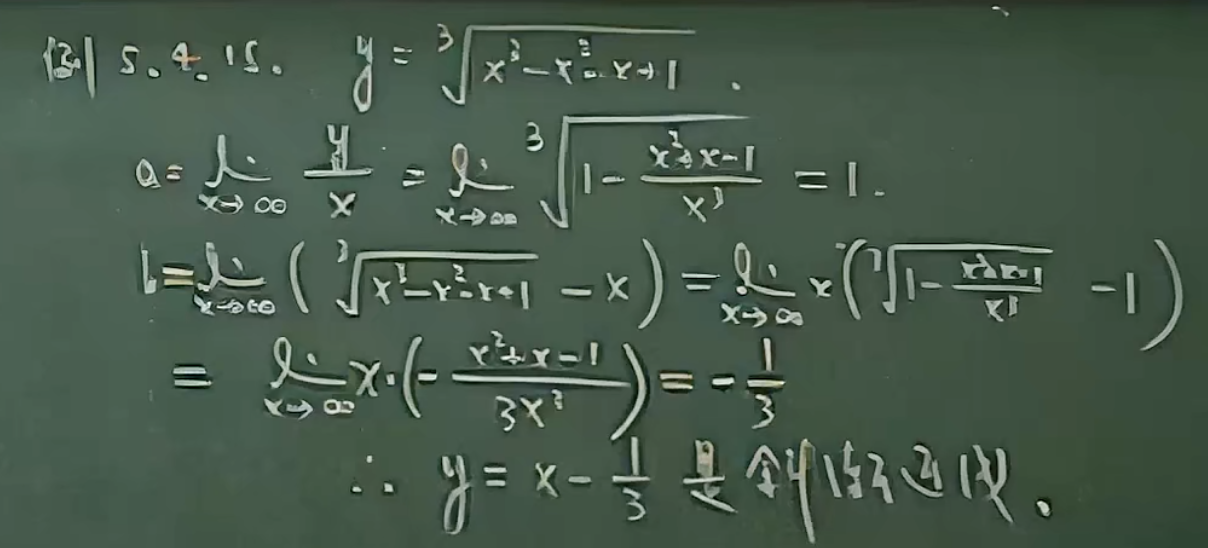 例 5.4.15. y = ∛(x³−x²−x+1).
a = lim_{x→∞} y/x = lim_{x→∞} ∛(1 − (x²+x−1)/x³) = 1.
b = lim_{x→∞} (∛(x³−x²−x+1) − x) = lim_{x→∞} x(∛(1 − (x²+x−1)/x³) − 1)
= lim_{x→∞} x·(− (x²+x−1)/(3x³)) = −1/3
∴ y = x − 1/3 是斜渐近线.